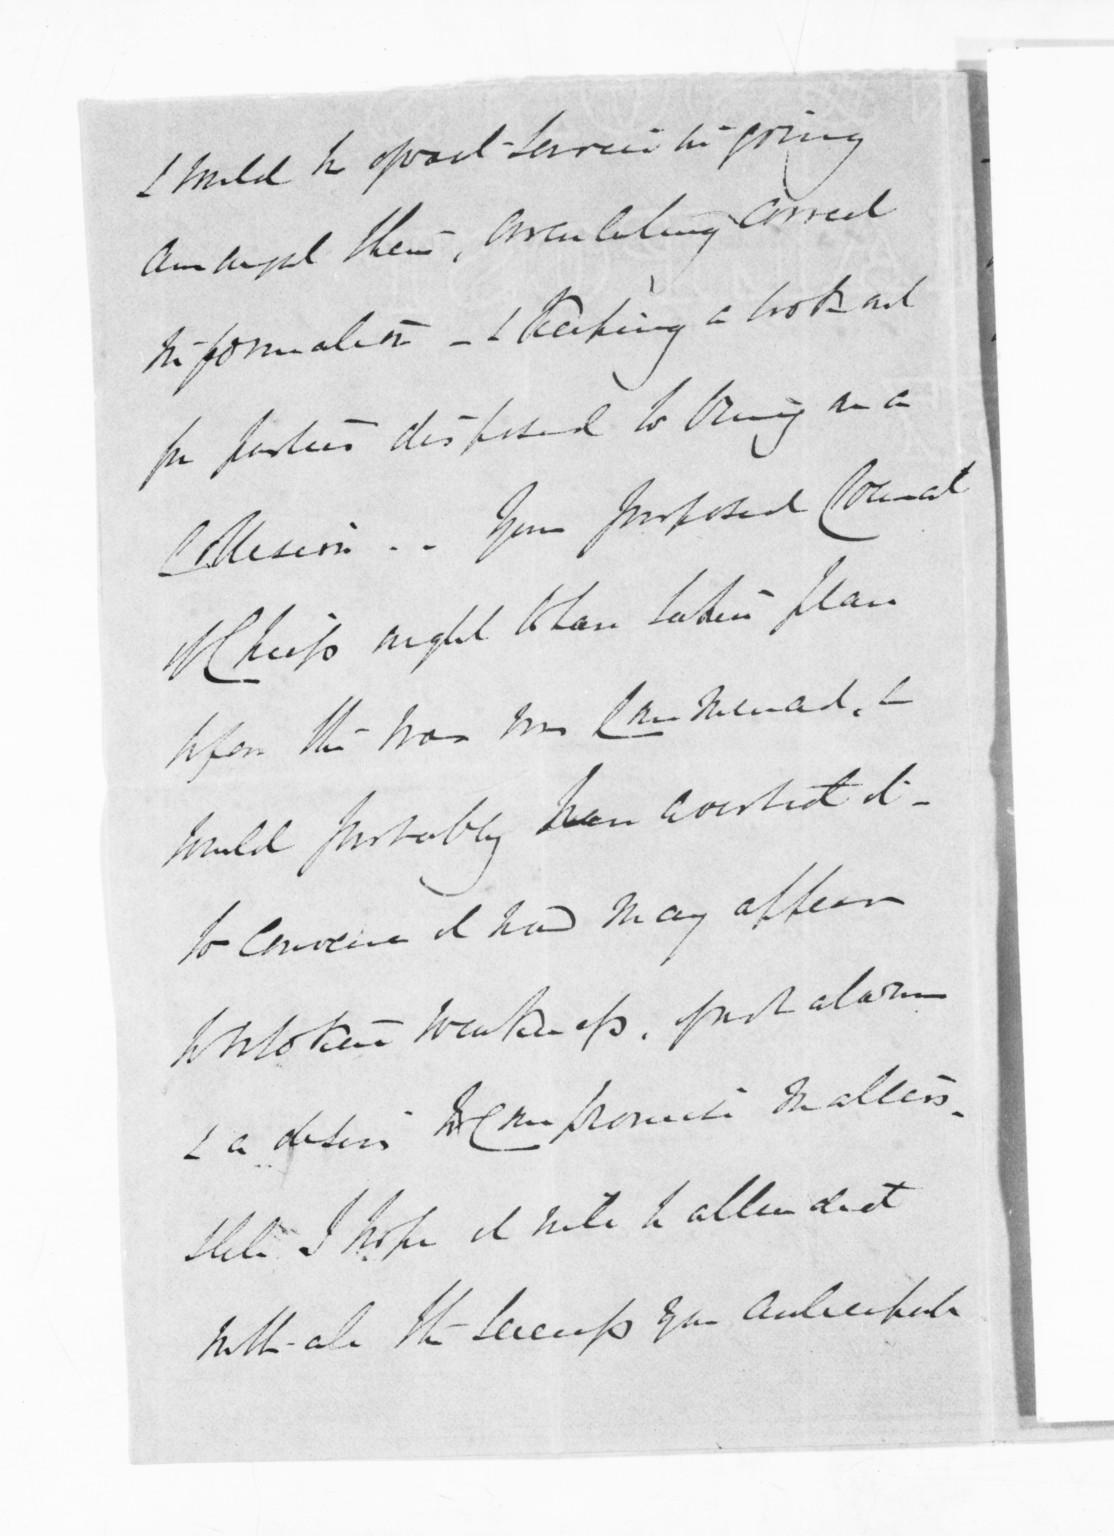 & would be of vast service in going
amongst them, circulating correct
information - & keeping a look out
for parties disposed to bring on a
Collision .. Your proposed Council
of Chiefs ought to have taken place
before the war was commenced, &
would probably have averted it -
to convene it now may appear
to betoken weakness, great alarm
& a desire to Compromise matters.
Still I hope it will be attended
with all the success you anticipate